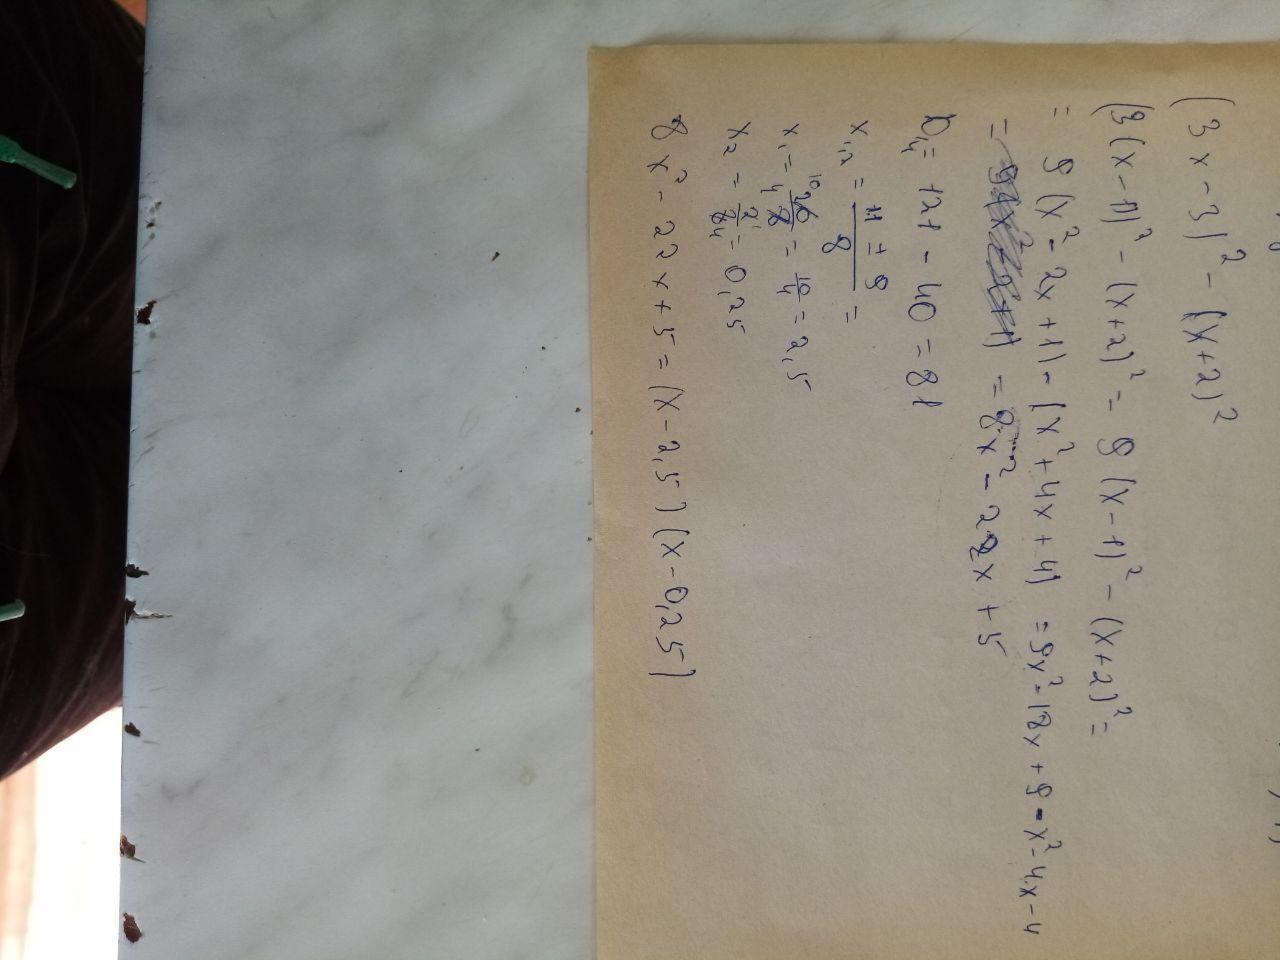 (3x-3)² - (x+2)²
(3(x-1))² - (x+2)² = 9(x-1)² - (x+2)² =
= 9(x² - 2x + 1) - (x² + 4x + 4) = 9x² - 18x + 9 - x² - 4x - 4
= = 8x² - 22x + 5
D/4 = 121 - 40 = 81
x₁,₂ = (11 ± 9)/8 =
x₁ = 20/8 10/4 = 10/4 = 2,5
x₂ = 2/8 1/4 = 0,25
8x² - 22x + 5 = (x - 2,5)(x - 0,25)